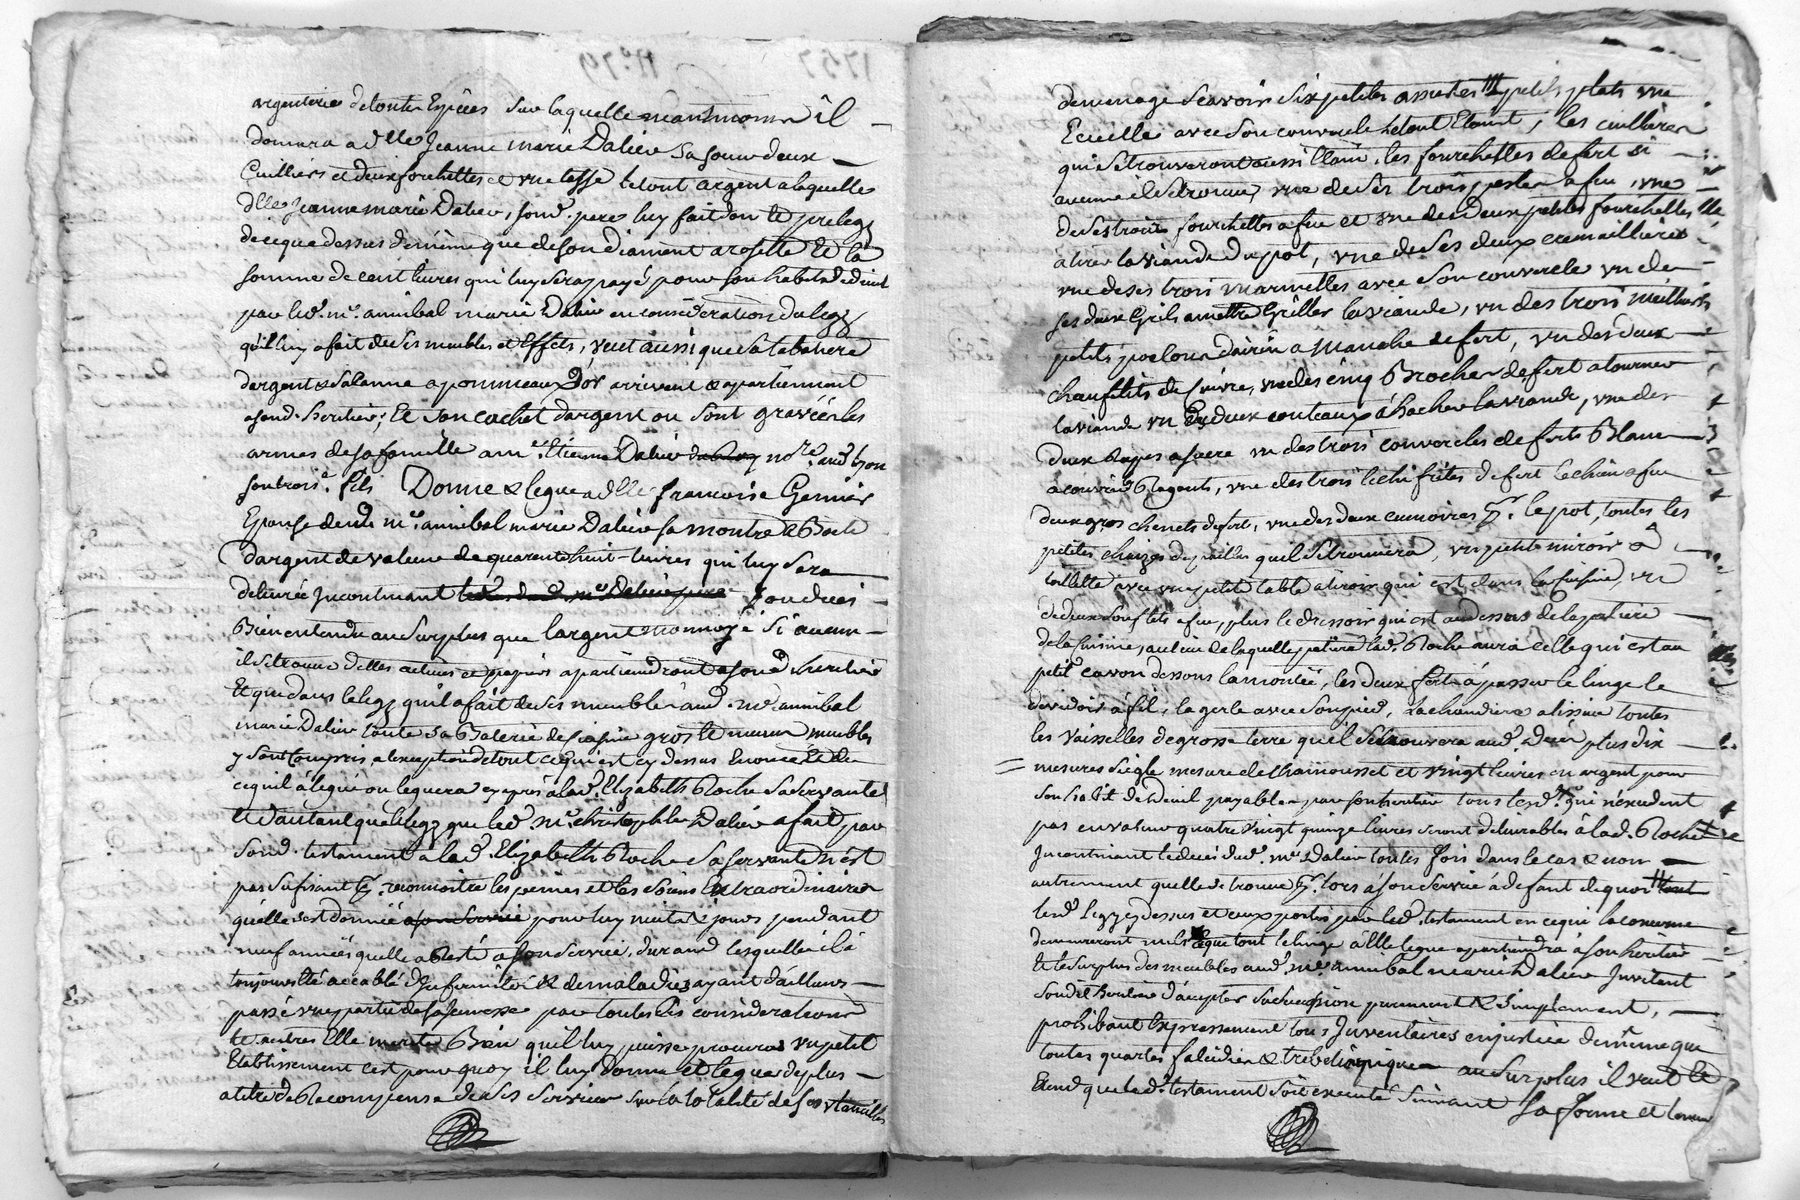 1757
N° 79
argenterie de toutes Espèces sur laquelle neantmoins il
donnera a dlle Jeanne marie Dalier sa soeur deux
Cuilliers et deux forchettes et une tasse le tout argent a laquelle
dlle Jeanne marie Dalier, sond. pere luy fait don et prelegz
de ce que dessus de même que de son diamant a rosette et la
somme de cent livres qui luy sera payé pour son habit de deuil
par led. mr. annibal marie Dalier en consideration du legz
qu'il luy a fait de ses meubles et Effets, veut aussi que sa tabatiere
dargent & sa Canne a pommeau D'or arrivent & apartiennent
a sond. heritier; Et son cachet dargent ou sont gravéés les
armes de sa famille a mr. Etienne Dalier no.re aud. Lyon
son trois.e fils Donne & legue a dlle francoise Gernier
Epouse dud. mr. annibal marie Dalier sa montre & Boete
dargent de valeur de quarante huit livres qui luy sera
delivrée incontinant son deces
Bien entendu au surplus que largent monnoyé si aucun
il se trouve dettes actives et papiers apartiendront a sond. heritier
Et que dans le legz qu'il a fait de ses meubles aud. mr. annibal
marie Dalier toute sa Baterie de Cuisine gros et menus meubles
y sont Compris a lexception de tout ce qui est cy dessus Enoncé et de
ce quil a legué ou leguera cy apres a lad. Elizabeth Roche sa servante
Et d'autant que le legz que led. mr. christophle Dalier a fait par
sond. testament a lad. Elizabeth Roche sa servante n'est
pas sufisant pr. reconnoitre les peines et les soins Extraordinaires
qu'elle s'est donnée pour luy nuit & jours pendant
neuf années quelle a Resté a son service, durand lesquelles il a
toujours Eté accablé d'Infirmités & de maladies ayant d'ailleurs
passé une partie de sa Jeunesse par toutes les considerations
Et autres Elle merite Bien qu'il luy puisse procurer un petit
Etablissement c'est pour quoy il luy donne et legue de plus
a titre de Recompense de ses services sur la totalité de ses Utancilles
de menage scavoir six petites assiettes petits plats une
Ecuelle avec son couvercle le tout Etaint, les cuillieres
qui se trouveront aussi Etain, les fourchettes de fert si
aucune il se trouve, une de ses trois pesles a feu, une
de ses trois fourchettes a feu et une des deux petites fourchettes
a tirer la viande du pot, une de ses deux cremaillieres
une de ses trois marmittes avec son couvercle un de
ses deux Grils a mettre Griller la viande, un des trois meilleurs
petits poelons dairin a manche de fert, un des deux
chaufelits de Cuivre, une des cinq Broches de fert a tourner
la viande un des deux couteaux à hacher la viande, une des
deux Rapes a sucre un des trois couvercles de ferts Blanc
a couvrir Ragouts, une des trois lichifrites de fert le chien a feu
deux gros chenets de fert, une des deux cumoires pr. le pot, toutes les
petites chaizes de pailles quel se trouvera, un petit miroir a
toillette avec une petite table a tiroir qui est dans la Cuisine, un
de deux souflets a feu, plus le dressoir qui est au dessus de la patiere
de la Cuisine, au lieu de laquelle patiere lad. Roche aura celle qui est au
petit cavon dessous la montée, les deux ferts à passer le linge le
devidoir à fil, la gerle avec son pied, la chaudiere a lissive toutes
les vaisselles de grosse terre quel se trouvera aud. Deces plus dix
mesures siegle mesure de Chamousset et vingt livres en argent pour
son habit de Deuil payables par son heritier tous lesd. qui n'excedent
pas en valeur quatre vingt quinze livres seront delivrables à lad. Roche
Incontinant le deces dud. mr. Dalier toutes fois dans le cas & non
autrement quelle se trouve pr. lors a son service à defaut de quoi
lesd. legz cy dessus et ceux portés par led. testament en ce qui la concerne
demeureront nuls tout le linge a Elle legué apartiendra à son heritier
Et le surplus des meubles aud. mr. annibal marie Dalier Invitant
sondit heritier d'accepter sa sucession purement & simplement,
prohibant Expressement tous Inventaires en justice de même que
toutes quartes falcidies & trebelianique au surplus il veut &
Entend que led. testament soit executé suivant sa forme et teneur